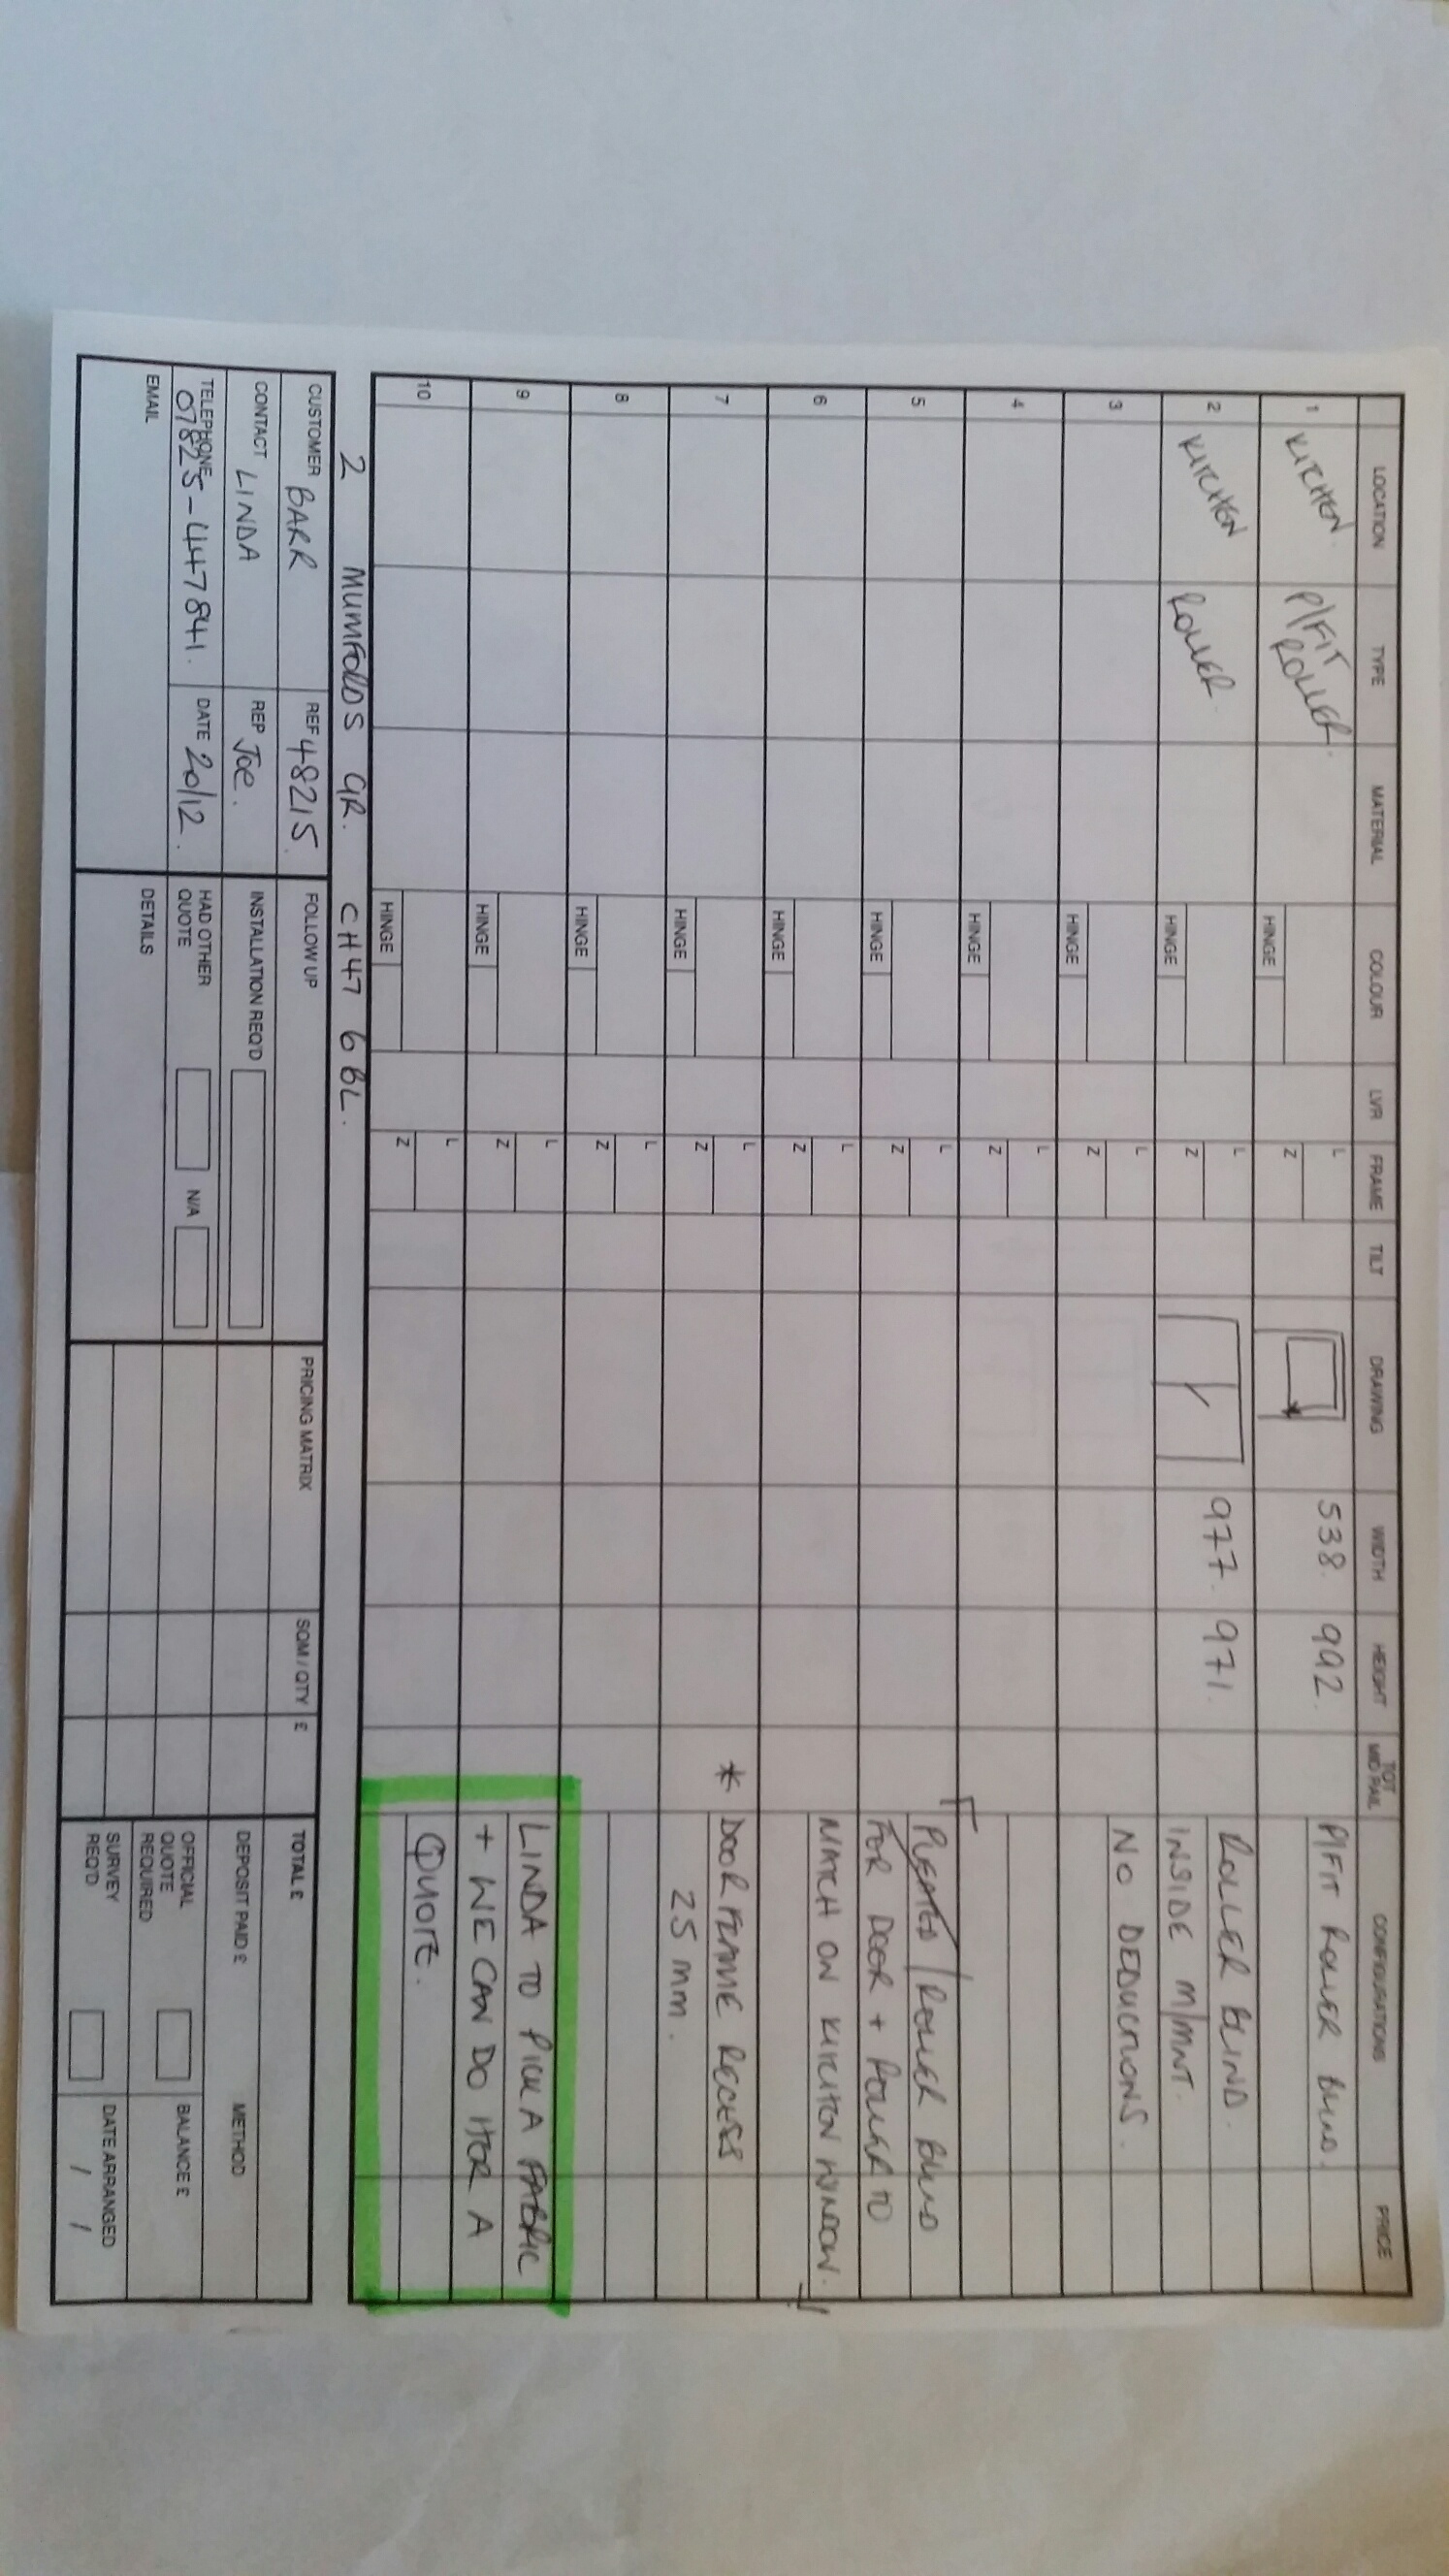 LOCATION TYPE MATERIAL COLOUR LVR FRAME TILT DRAWING WIDTH HEIGHT TOT MID RAIL CONFIGURATIONS PRICE
1 KITCHEN. P/FIT ROLLER. HINGE L Z 538. 992. P/FIT ROLLER BLIND.
2 KITCHEN ROLLER. HINGE L Z 977. 971. ROLLER BLIND.
INSIDE M/MNT.
3 HINGE L Z NO DEDUCTIONS.
4 HINGE L Z
5 HINGE L Z PLEATED/ROLLER BLIND
FOR DOOR + ROLLER TO
6 HINGE L Z MATCH ON KITCHEN WINDOW.
7 HINGE L Z * DOOR FRAME RECESS
25 mm.
8 HINGE L Z
9 HINGE L Z LINDA TO PICK A FABRIC
+ WE CAN DO HER A
10 HINGE L Z QUOTE.
2 MUMFORDS GR. CH47 6BL.
CUSTOMER BARR REF 48215. FOLLOW UP PRICING MATRIX SQM / QTY £ TOTAL £
CONTACT LINDA REP Joe. INSTALLATION REQ'D DEPOSIT PAID £ METHOD
TELEPHONE 07825-447841. DATE 20/12. HAD OTHER QUOTE N/A OFFICIAL QUOTE REQUIRED BALANCE £
EMAIL DETAILS SURVEY REQ'D DATE ARRANGED / /